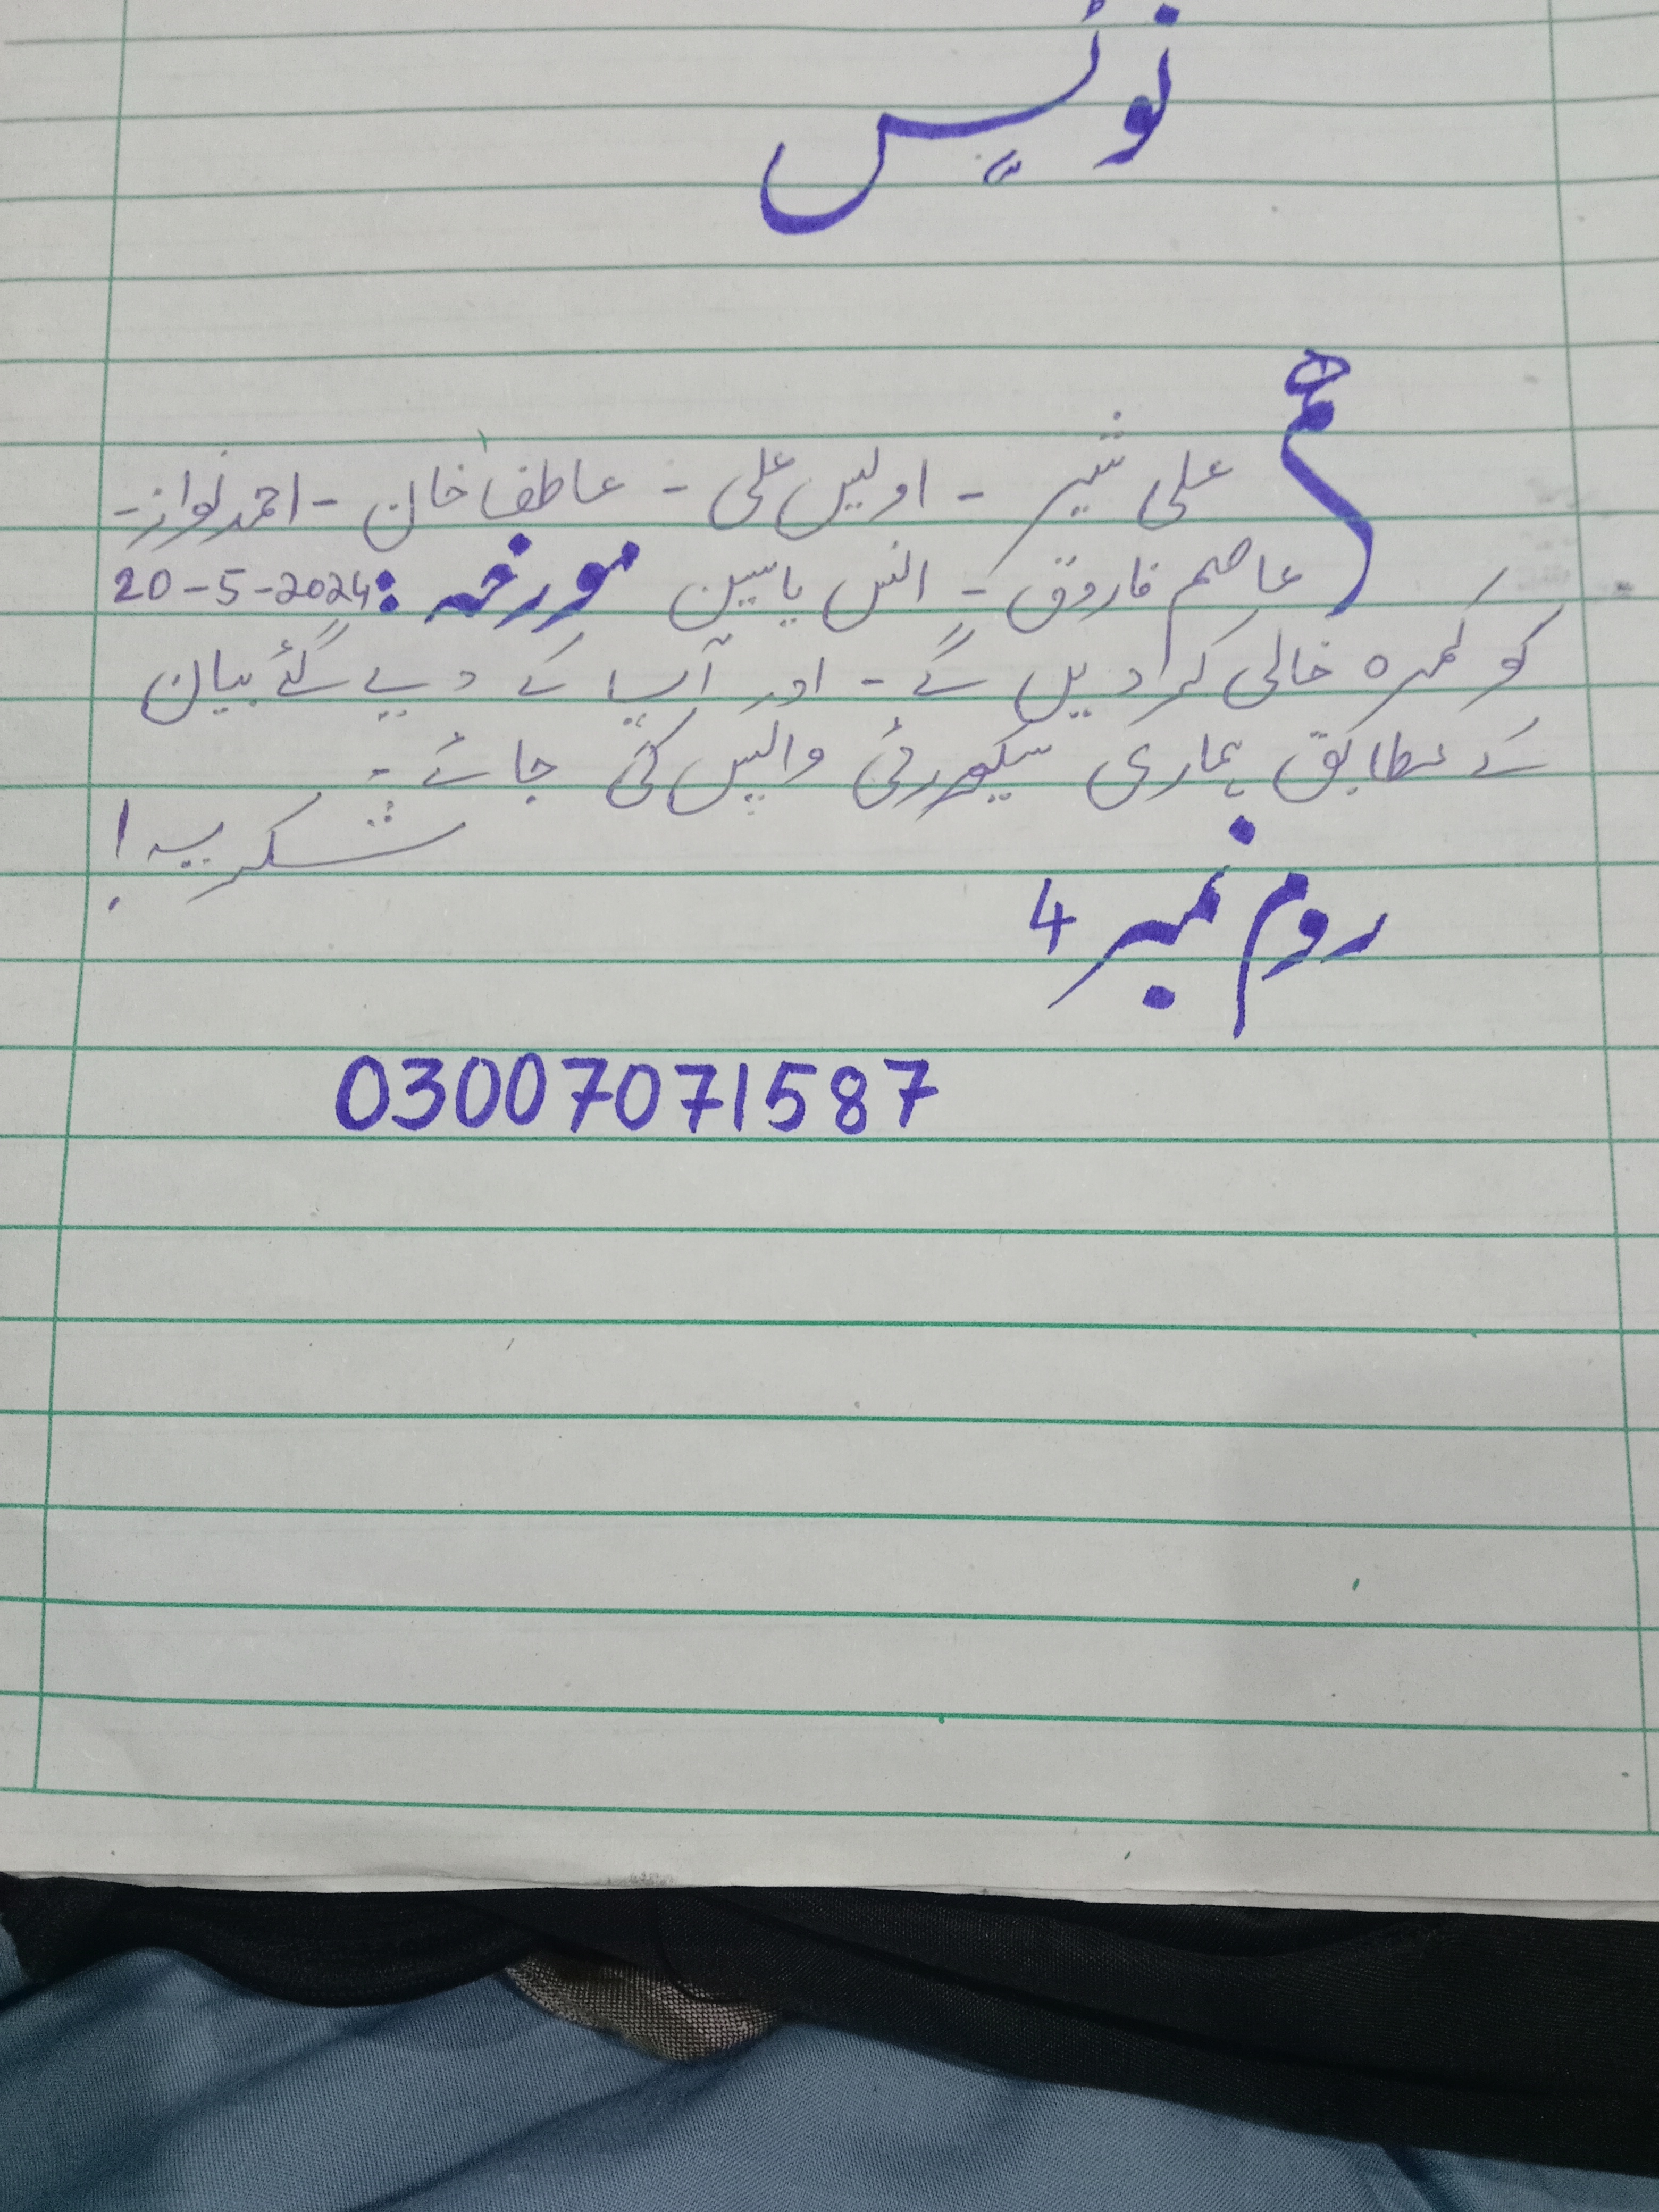 نوٹس
ہم
علی شیر - اویس علی - عاطف خان - احمد نواز -
عاصم فاروق - انس یاسین مورخہ: 20-5-2024
کو کمرہ خالی کر دیں گے - اور آپ کے دیے گئے بیان
کے مطابق ہماری سیکورٹی واپس کی جائے -
شکریہ!
روم نمبر 4
03007071587